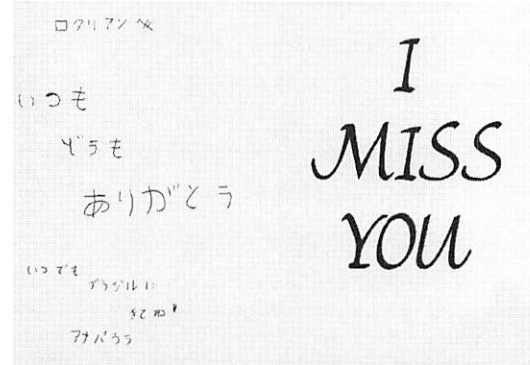 ロクリアン へ
いつも
どうも
ありがとう
いつでも
ブラジルに
きてね
アナパウラ
I
MISS
YOU